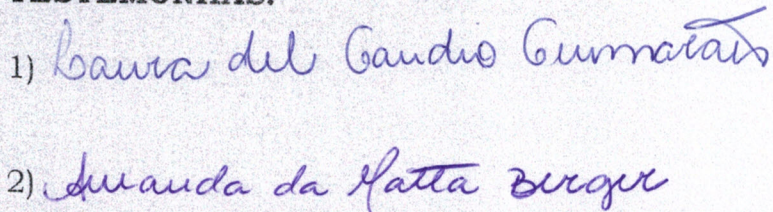 TESTEMUNHAS:
1) Laura del Gaudio Guimarães
2) Amanda da Matta Berger